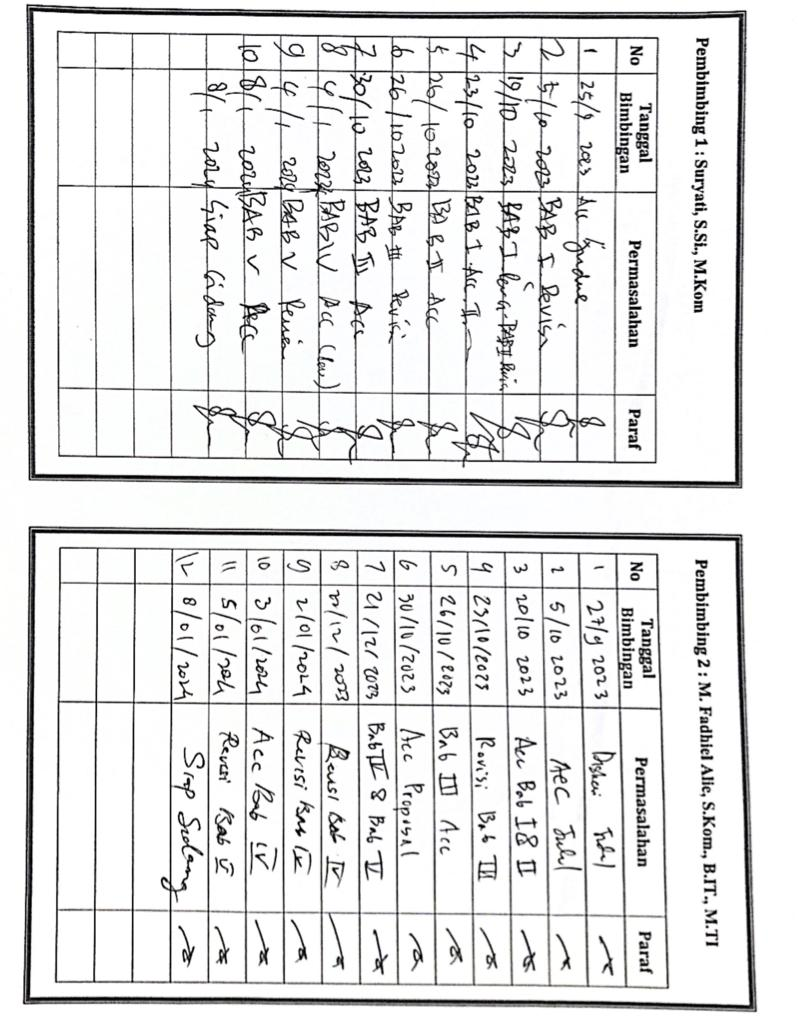 Pembimbing 1 : Suryati, S.Si., M.Kom
No Tanggal Bimbingan Permasalahan Paraf
1 25/9 2023 Acc
2 5/10 2023 BAB I Revisi
3 19/10 2023 BAB I BAB II Revisi
4 23/10 2023 BAB I Acc II
5 26/10 2023 BAB II Acc
6 26/10 2023 BAB III Revisi
7 30/10 2023 BAB III Acc
8 4/1 2024 BAB IV Acc
9 4/1 2024 BAB V Revisi
10 8/1 2024 BAB V Acc
8/1 2024 Siap Sidang
Pembimbing 2 : M. Fadhiel Alie, S.Kom., B.IT., M.TI
No Tanggal Bimbingan Permasalahan Paraf
1 27/9 2023 Diskusi Judul
2 5/10 2023 ACC Judul
3 20/10 2023 Acc Bab I & II
4 23/10/2023 Revisi Bab III
5 26/10/2023 Bab III Acc
6 30/10/2023 Acc Proposal
7 21/12/2023 Bab IV & Bab V
8 22/12/2023 Revisi Bab IV
9 2/01/2024 Revisi Bab IV
10 3/01/2024 Acc Bab IV
11 5/01/2024 Revisi Bab V
12 8/01/2024 Siap Sidang